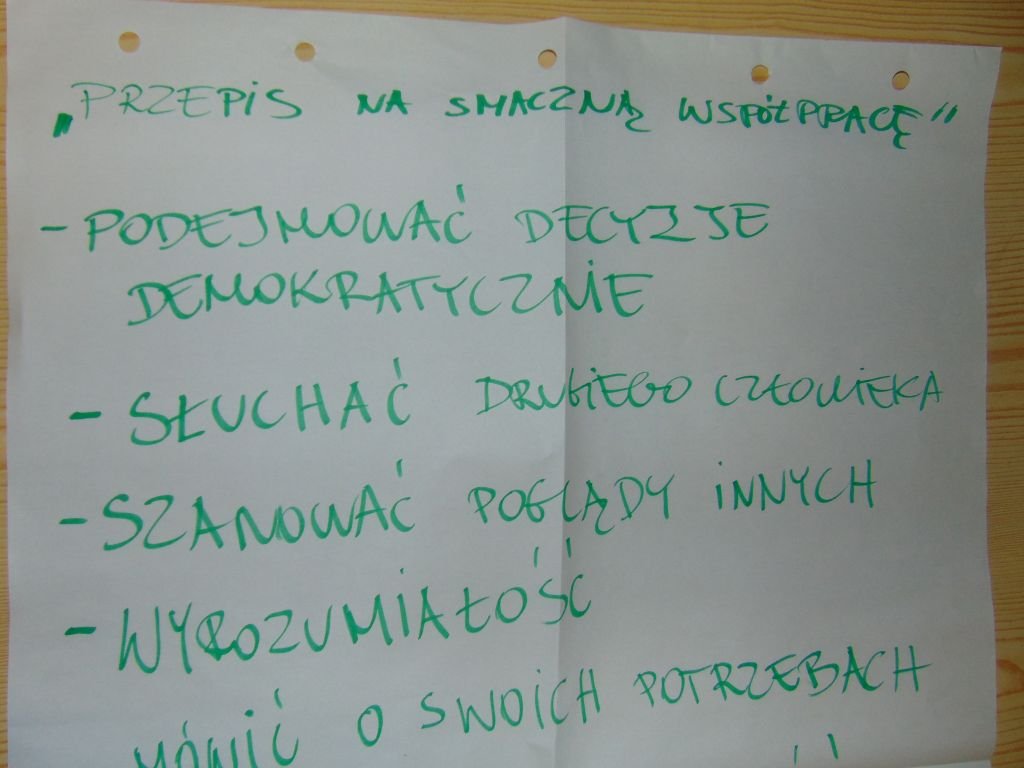 „PRZEPIS NA SMACZNĄ WSPÓŁPRACĘ"
- PODEJMOWAĆ DECYZJE
DEMOKRATYCZNIE
- SŁUCHAĆ DRUGIEGO CZŁOWIEKA
- SZANOWAĆ POGLĄDY INNYCH
- WYROZUMIAŁOŚĆ
MÓWIĆ O SWOICH POTRZEBACH